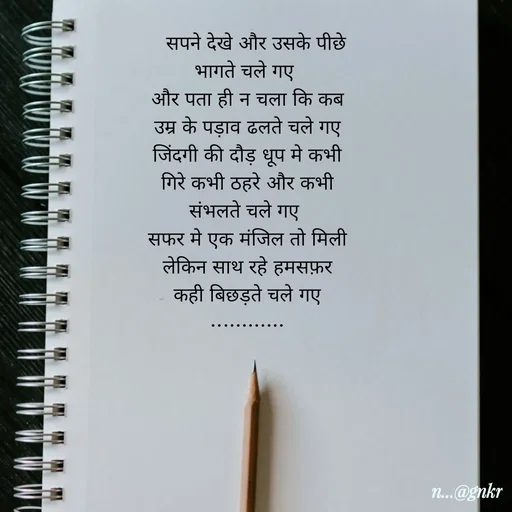 सपने देखे और उसके पीछे
भागते चले गए
और पता ही न चला कि कब
उम्र के पड़ाव ढलते चले गए
जिंदगी की दौड़ धूप मे कभी
गिरे कभी ठहरे और कभी
संभलते चले गए
सफर मे एक मंजिल तो मिली
लेकिन साथ रहे हमसफ़र
कही बिछड़ते चले गए
............
n...@gnkr